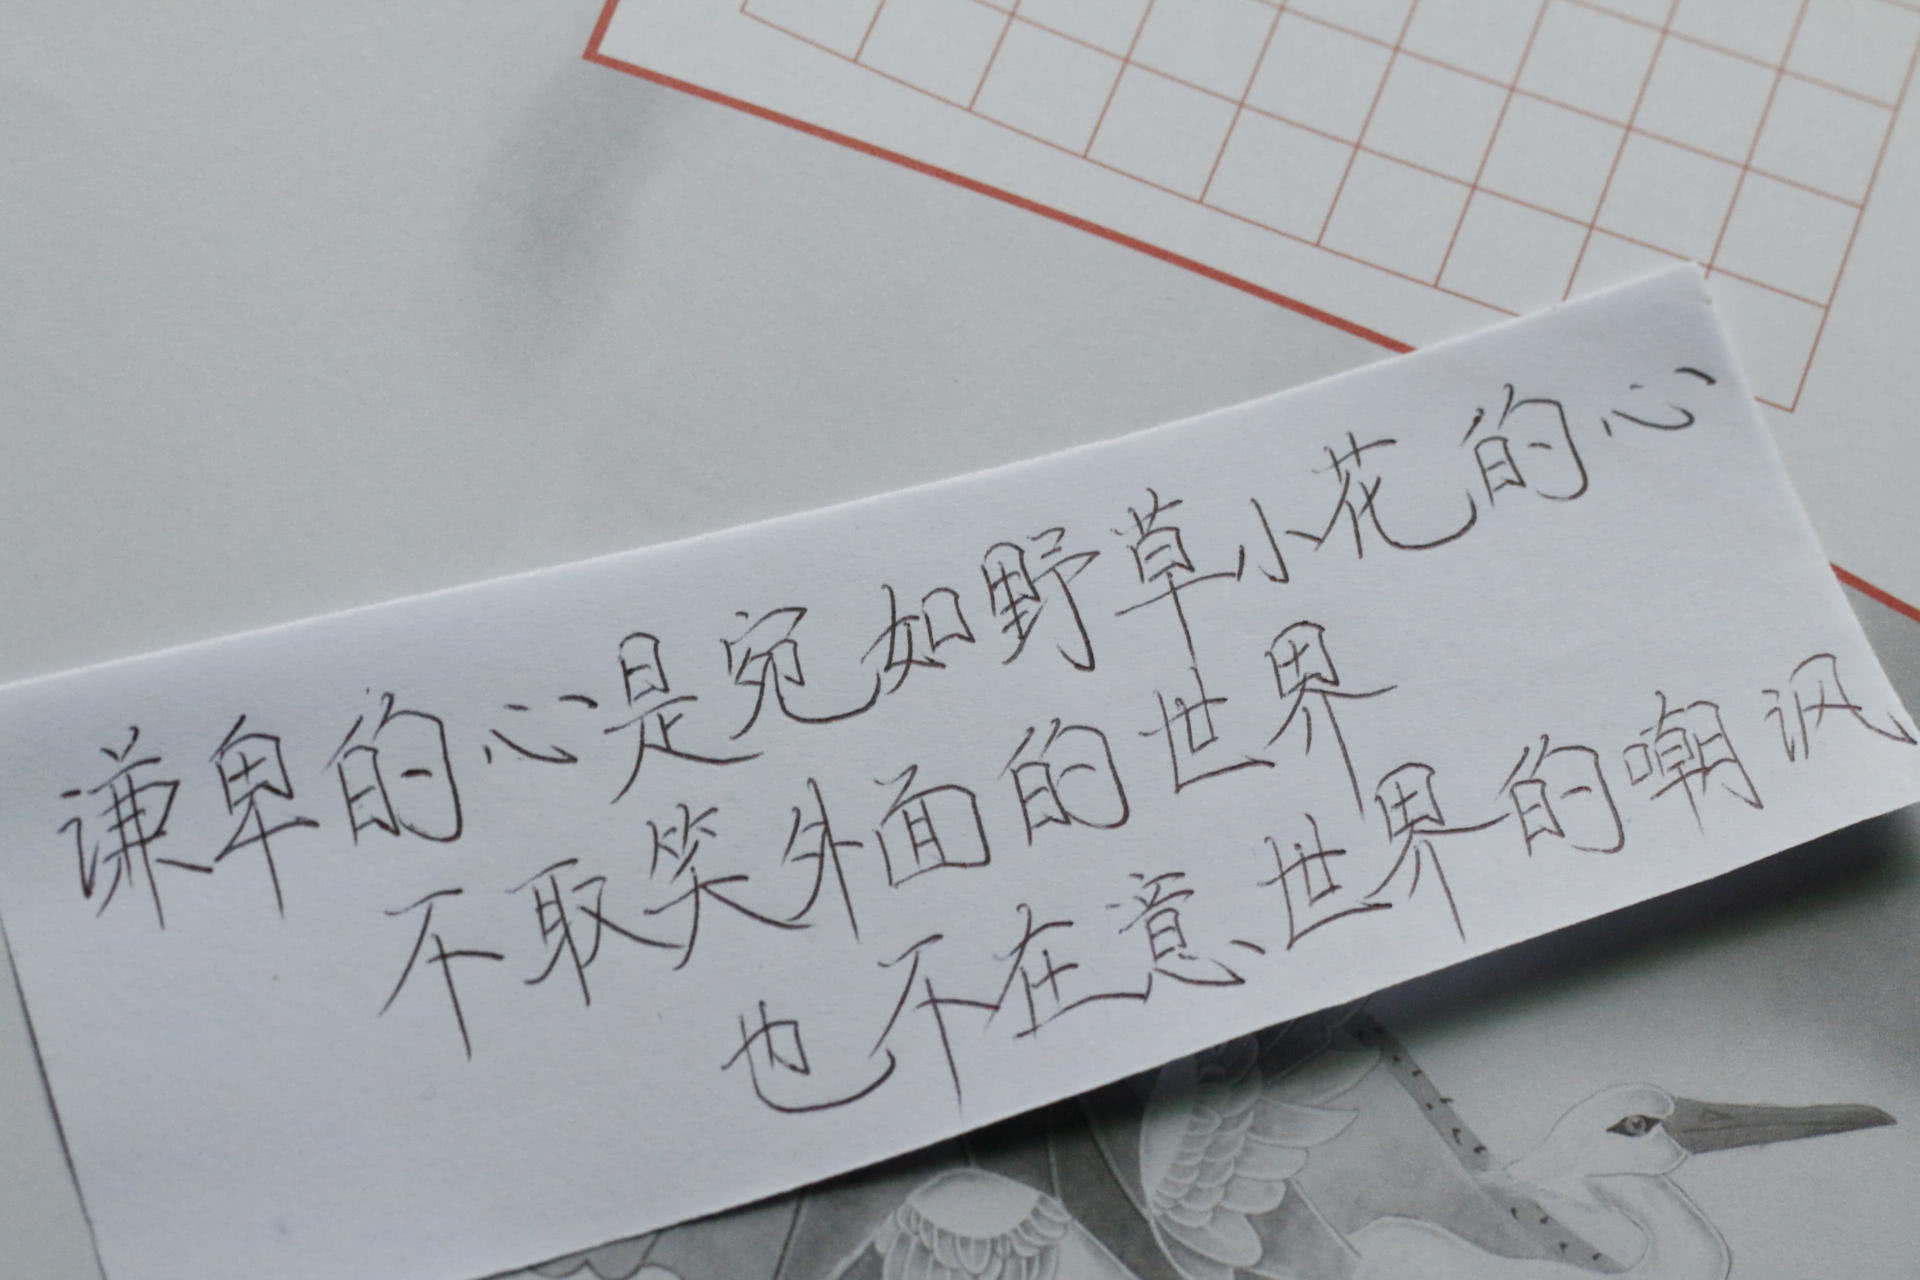 谦卑的心是宛如野草小花的心
不取笑外面的世界
也不在意世界的嘲讽